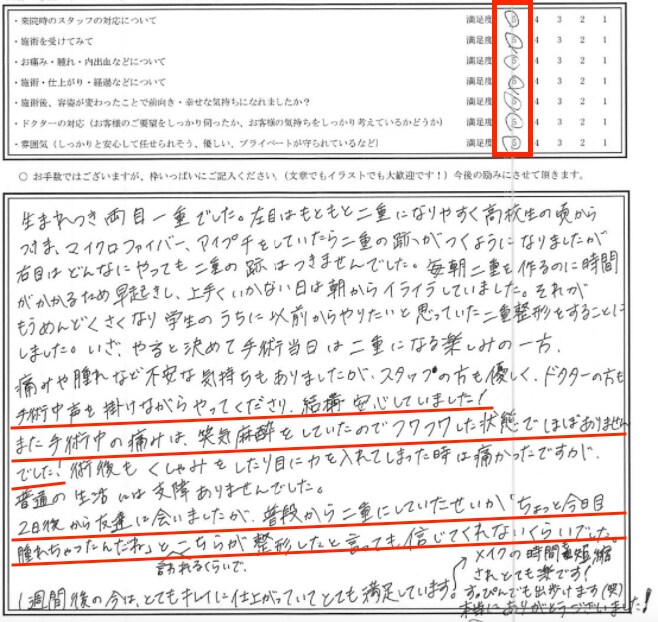 ・来院時のスタッフの対応について 満足度 5 4 3 2 1
・施術を受けてみて 満足度 5 4 3 2 1
・お痛み・腫れ・内出血などについて 満足度 5 4 3 2 1
・施術・仕上がり・経過などについて 満足度 5 4 3 2 1
・施術後、容姿が変わったことで前向き・幸せな気持ちになれましたか？ 満足度 5 4 3 2 1
・ドクターの対応（お客様のご要望をしっかり伺ったか、お客様の気持ちをしっかり考えているかどうか） 満足度 5 4 3 2 1
・雰囲気（しっかりと安心して任せられそう、優しい、プライベートが守られているなど） 満足度 5 4 3 2 1
○ お手数ではございますが、枠いっぱいにご記入ください。（文章でもイラストでも大歓迎です！）今後の励みにさせて頂きます。
生まれつき両目一重でした。左目はもともと二重になりやすく高校生の頃から
つけま、マイクロファイバー、アイプチをしていたら二重の跡がつくようになりましたが
右目はどんなにやっても二重の跡はつきませんでした。毎朝二重を作るのに時間
がかかるため早起きし、上手くいかない日は朝からイライラしていました。それが
もうめんどくさくなり学生のうちに以前からやりたいと思っていた二重整形をすることに
しました。いざ、やると決めて手術当日は二重になる楽しみの一方、
痛みや腫れなど不安な気持ちもありましたが、スタッフの方も優しく、ドクターの方も
手術中声を掛けながらやってくださり、結構安心していました！
また手術中の痛みは、笑気麻酔をしていたのでフワフワした状態でほぼありません
でした！術後もくしゃみをしたり目に力を入れてしまった時は痛かったですが、
普通の生活には支障ありませんでした。
2日後から友達に会いましたが、普段から二重にしていたせいか「ちょっと今日目
腫れちゃったんだね」と こちらが整形したと言っても信じてくれないくらいでした。
言われるくらいで、
メイクの時間も短縮
されとても楽です！
すっぴんでも出歩けます(笑)
1週間後の今は、とてもキレイに仕上がっていてとても満足しています。
本当にありがとうございました！